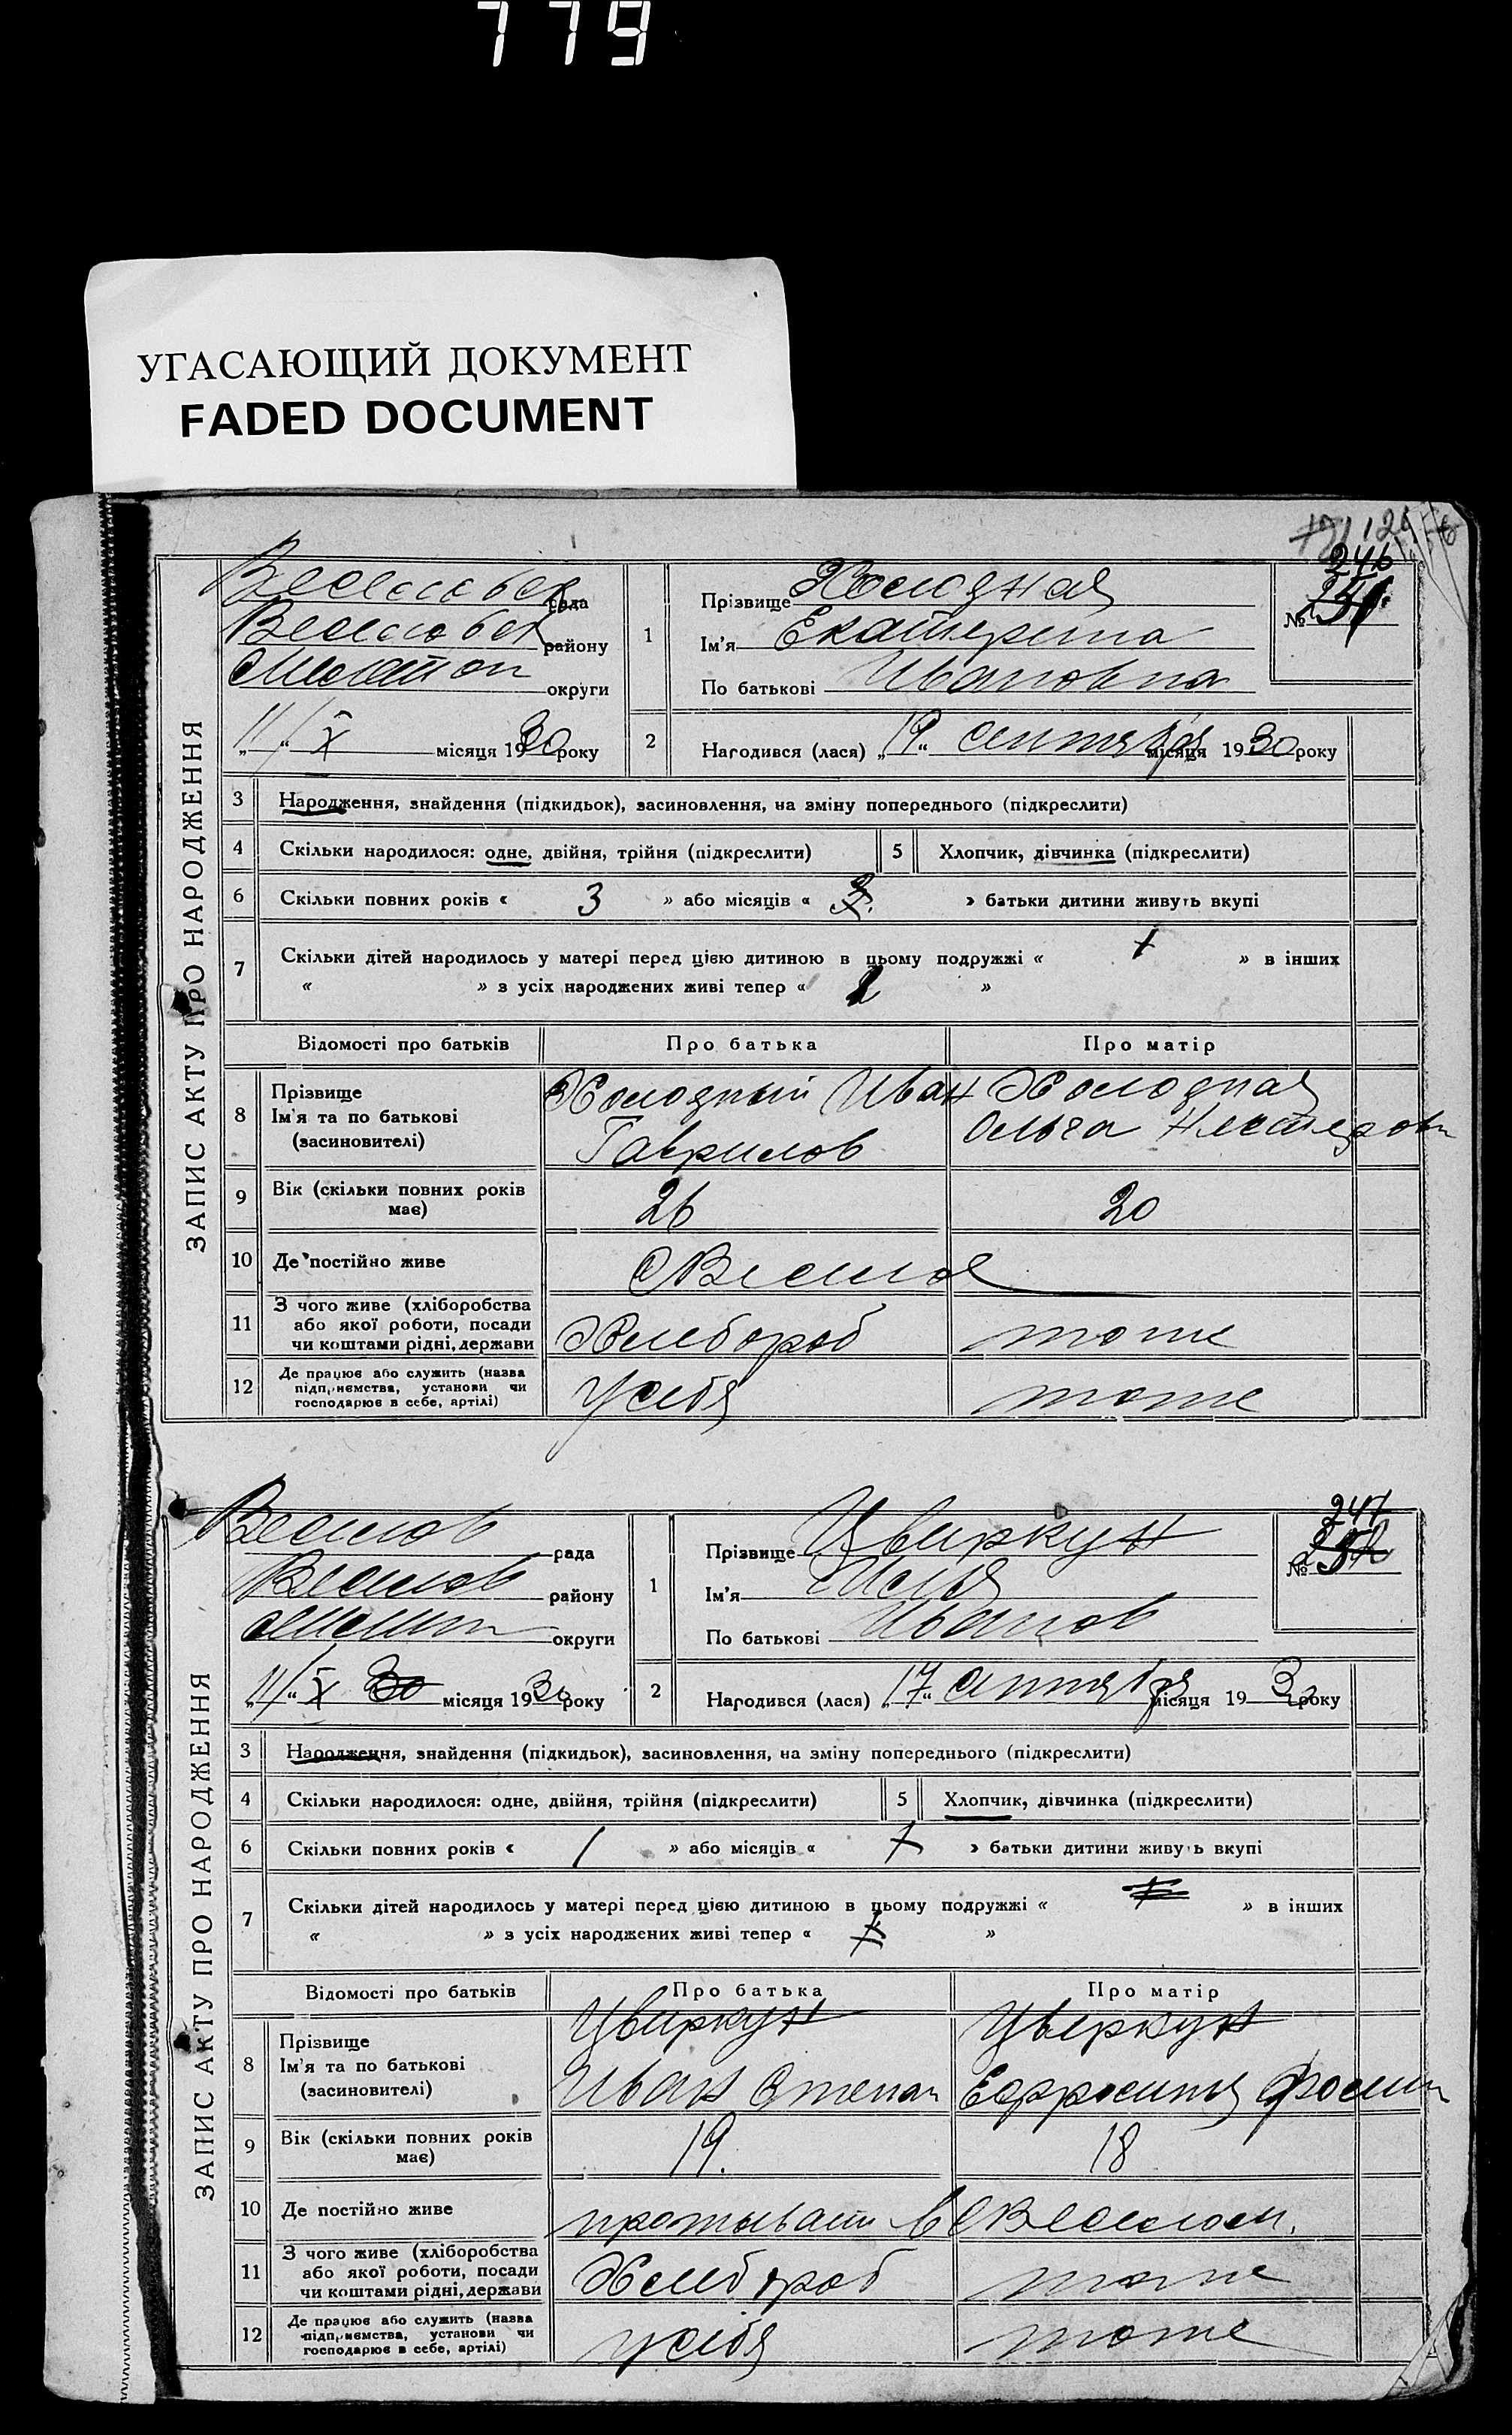 779
УГАСАЮЩИЙ ДОКУМЕНТ
FADED DOCUMENT
ЗАПИС АКТУ ПРО НАРОДЖЕННЯ
рада
району
округи
„11“ X місяця 1930 року
1
Прізвище Холодная
Ім'я Екатерина
По батькові Ивановна
№ 246
251
2
Народився (лася) „19“ сентября місяця 1930 року
3 Народження, знайдення (підкидьок), засиновлення, на зміну попереднього (підкреслити)
4 Скільки народилося: одне, двійня, трійня (підкреслити) 5 Хлопчик, дівчинка (підкреслити)
6 Скільки повних років « 3 » або місяців « » батьки дитини живуть вкупі
7 Скільки дітей народилось у матері перед цією дитиною в цьому подружжі « 1 » в інших
« » з усіх народжених живі тепер « »
Відомості про батьків Про батька Про матір
8 Прізвище
Ім'я та по батькові
(засиновителі)
Холодный Иван
Гаврилов
Холодная
Ольга Нестеровн
9 Вік (скільки повних років має) 26 20
10 Де постійно живе
11 З чого живе (хліборобства
або якої роботи, посади
чи коштами рідні, держави
Хлебороб тоже
12 Де працює або служить (назва
підприємства, установи чи
господарює в себе, артілі)
У себя тоже
ЗАПИС АКТУ ПРО НАРОДЖЕННЯ
Веселов рада
Веселов району
округи
„11“ X 30 місяця 1930 року
1
Прізвище Цвиркун
Ім'я Илья
По батькові Иванов
№ 247
252
2
Народився (лася) „17“ сентября місяця 1930 року
3 Народження, знайдення (підкидьок), засиновлення, на зміну попереднього (підкреслити)
4 Скільки народилося: одне, двійня, трійня (підкреслити) 5 Хлопчик, дівчинка (підкреслити)
6 Скільки повних років « 1 » або місяців « » батьки дитини живуть вкупі
7 Скільки дітей народилось у матері перед цією дитиною в цьому подружжі « » в інших
« » з усіх народжених живі тепер « »
Відомості про батьків Про батька Про матір
8 Прізвище
Ім'я та по батькові
(засиновителі)
Цвиркун
Иван Степан
Цверкун
Ефросиния Фомин
9 Вік (скільки повних років має) 19. 18
10 Де постійно живе проживают в с Веселом.
11 З чого живе (хліборобства
або якої роботи, посади
чи коштами рідні, держави
Хлебороб тоже
12 Де працює або служить (назва
підприємства, установи чи
господарює в себе, артілі)
у себя тоже